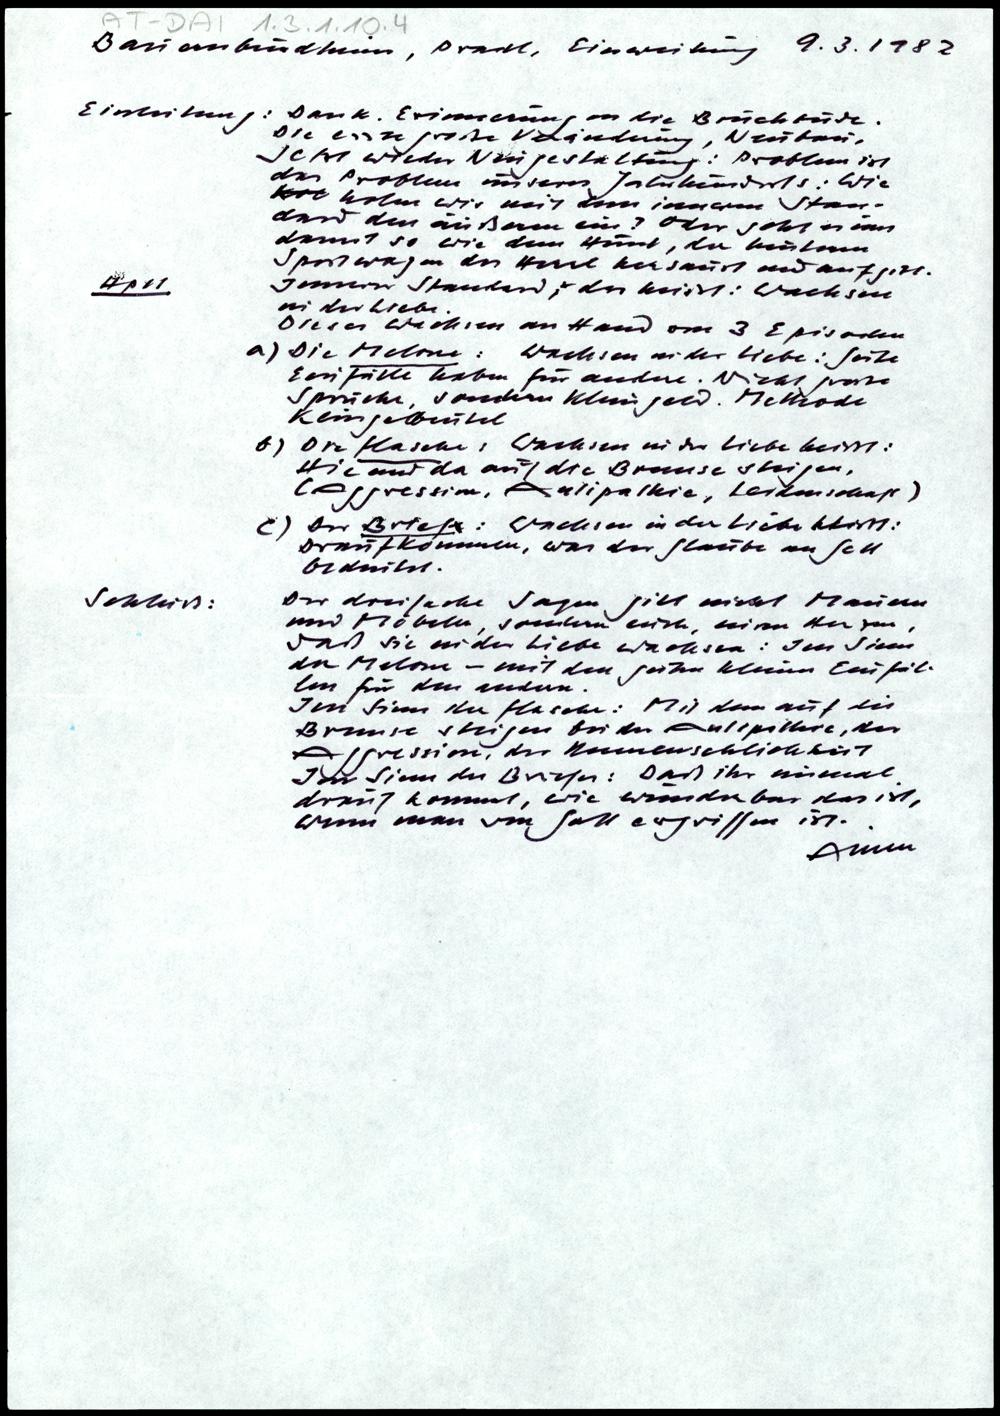 AT-DAI 1.3.1.10.4
Bauernbündheim, Pradl, Einweihung 9.3.1982
Einleitung: Dank. Erinnerung an die Bruchbude.
Die erste große Veränderung, Neubau.
Jetzt wieder Neugestaltung: Problem ist
das Problem unseres Jahrhunderts: Wie
holen wir mit dem inneren Stan-
dard den äußeren ein? Oder geht es uns
damit so wie dem Hund, der hinterm
Sportwagen des Herrl hersaust und aufgibt.
Innerer Standard, das heißt: Wachsen
in der Liebe.
Dieses Wachsen an Hand von 3 Episoden
a) Die Melone: Wachsen in der Liebe: Gute
Einfälle haben für andere. Nicht große
Sprüche, sondern Kleingeld. Methode
Kleingeldbeutel
b) Die Flasche: Wachsen in der Liebe heißt:
Hie und da auf die Bremse steigen.
(Aggression, Antipathie, Leidenschaft)
c) Der Brief: Wachsen in der Liebe heißt:
Draufkommen, was der Glaube an Gott
bedeutet.
Schluß: Der dreifache Segen gilt nicht Mauern
und Möbeln, sondern euch, euren Herzen,
daß sie in der Liebe wachsen: Im Sinn
der Melone – mit den guten kleinen Einfäl-
len für den andern.
Im Sinn der Flasche: Mit dem auf die
Bremse steigen bei der Antipathie, der
Aggression, der Unmenschlichkeit
Im Sinn des Briefes: Daß ihr einmal
drauf kommt, wie wunderbar das ist,
wenn man von Gott ergriffen ist.
Amen